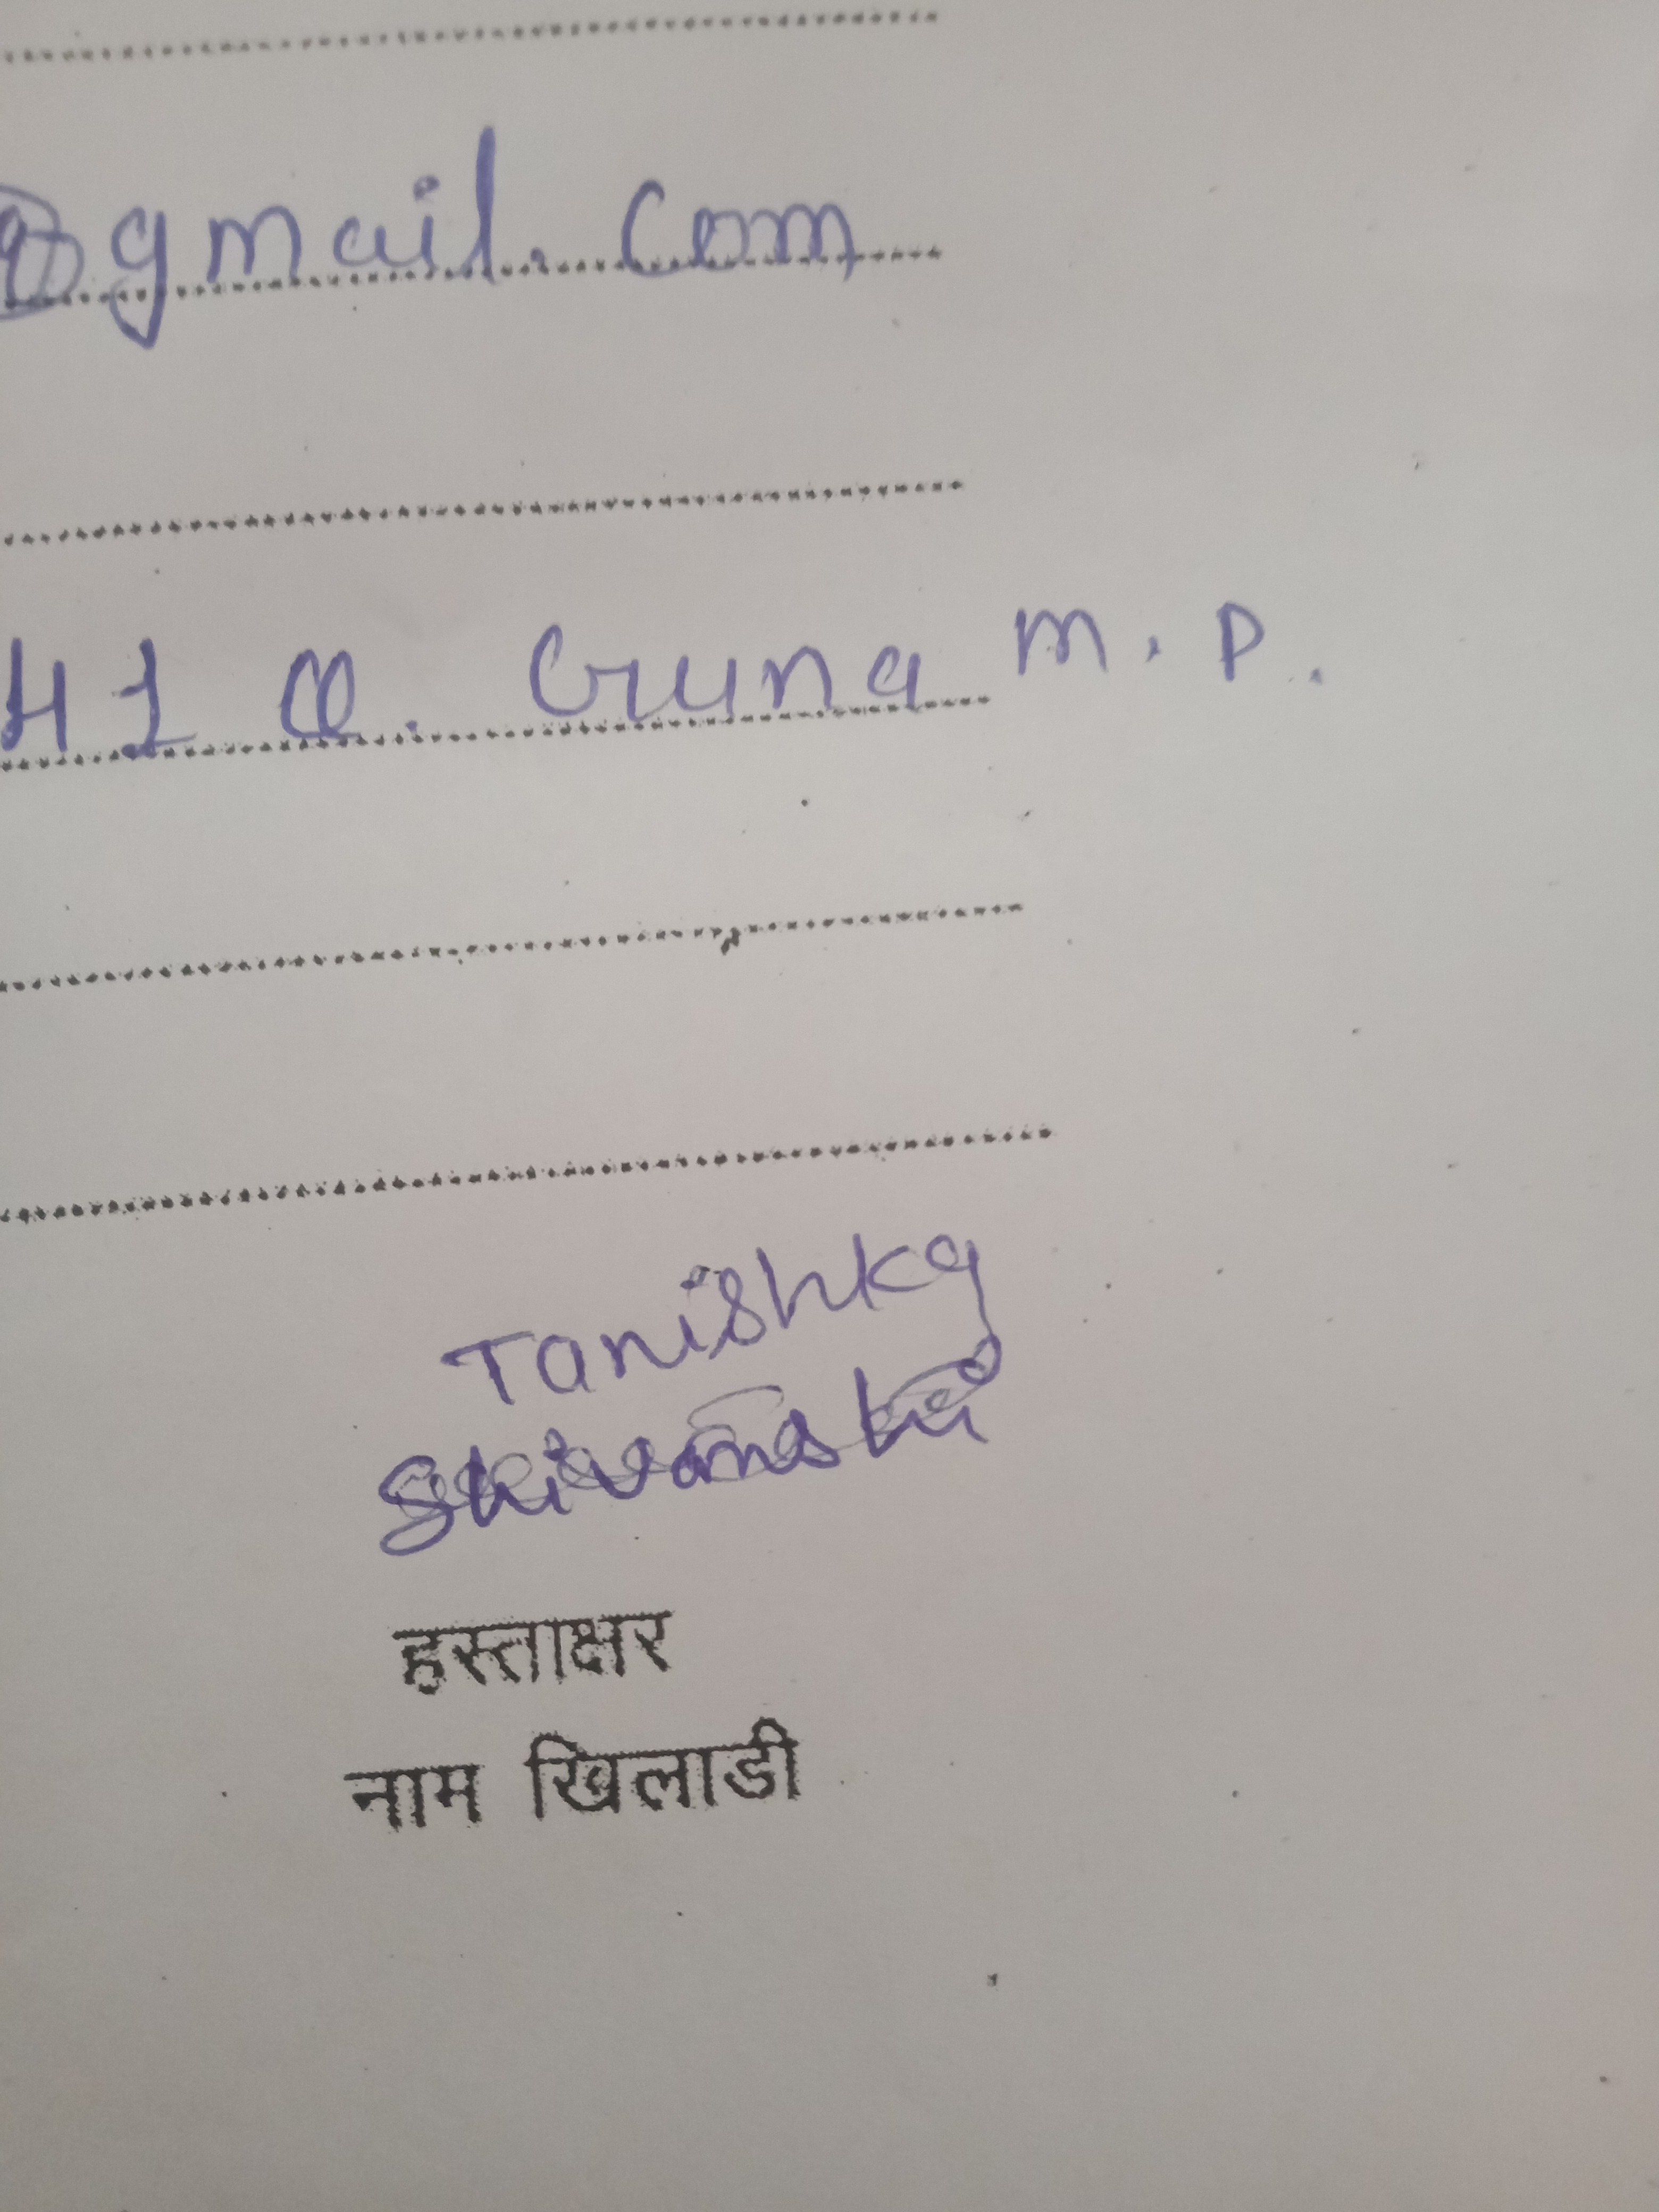 @gmail.com
41 Q. Guna M.P.
Tanishka
Shivanshi
हस्ताक्षर
नाम खिलाडी